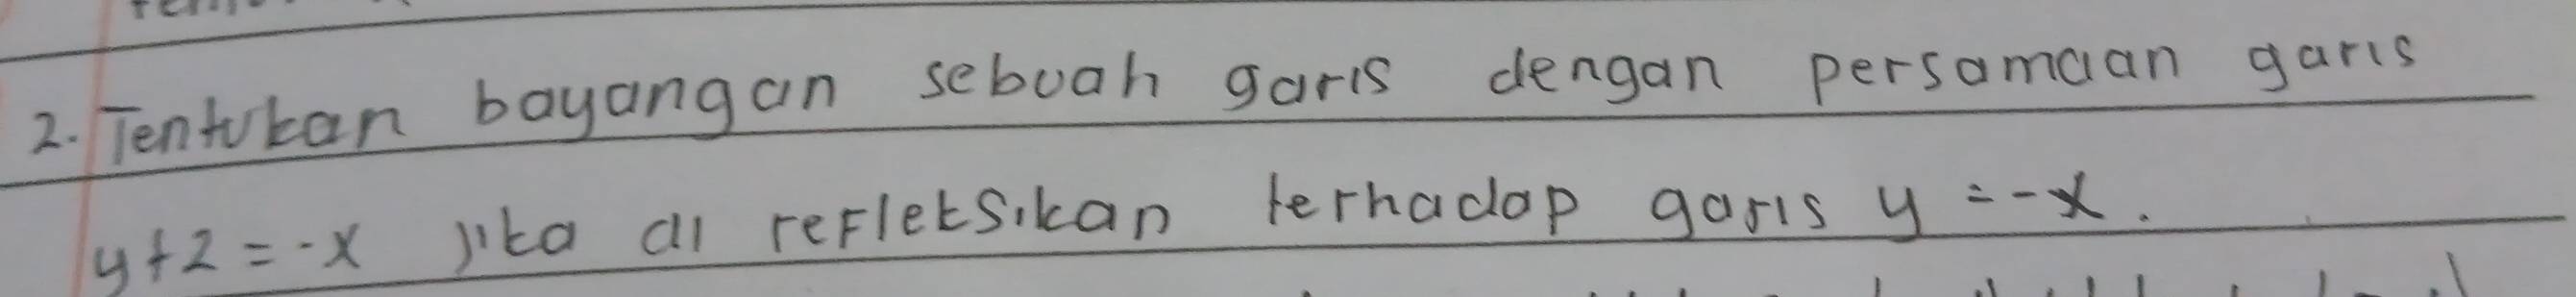 2. Tentukan bayangan sebuah garis dengan persamaan garis
y+2 = -x jika di refleksikan terhadap garis y = -x.